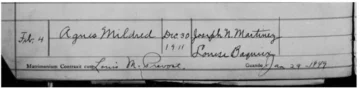 Feb. 4 Agnes Mildred Dec 30 Joseph N. Martinez
1911 Louise Baquiez
Matrimonium Contraxit cum Louis M. Prevost Gretna Jan 29 - 1949